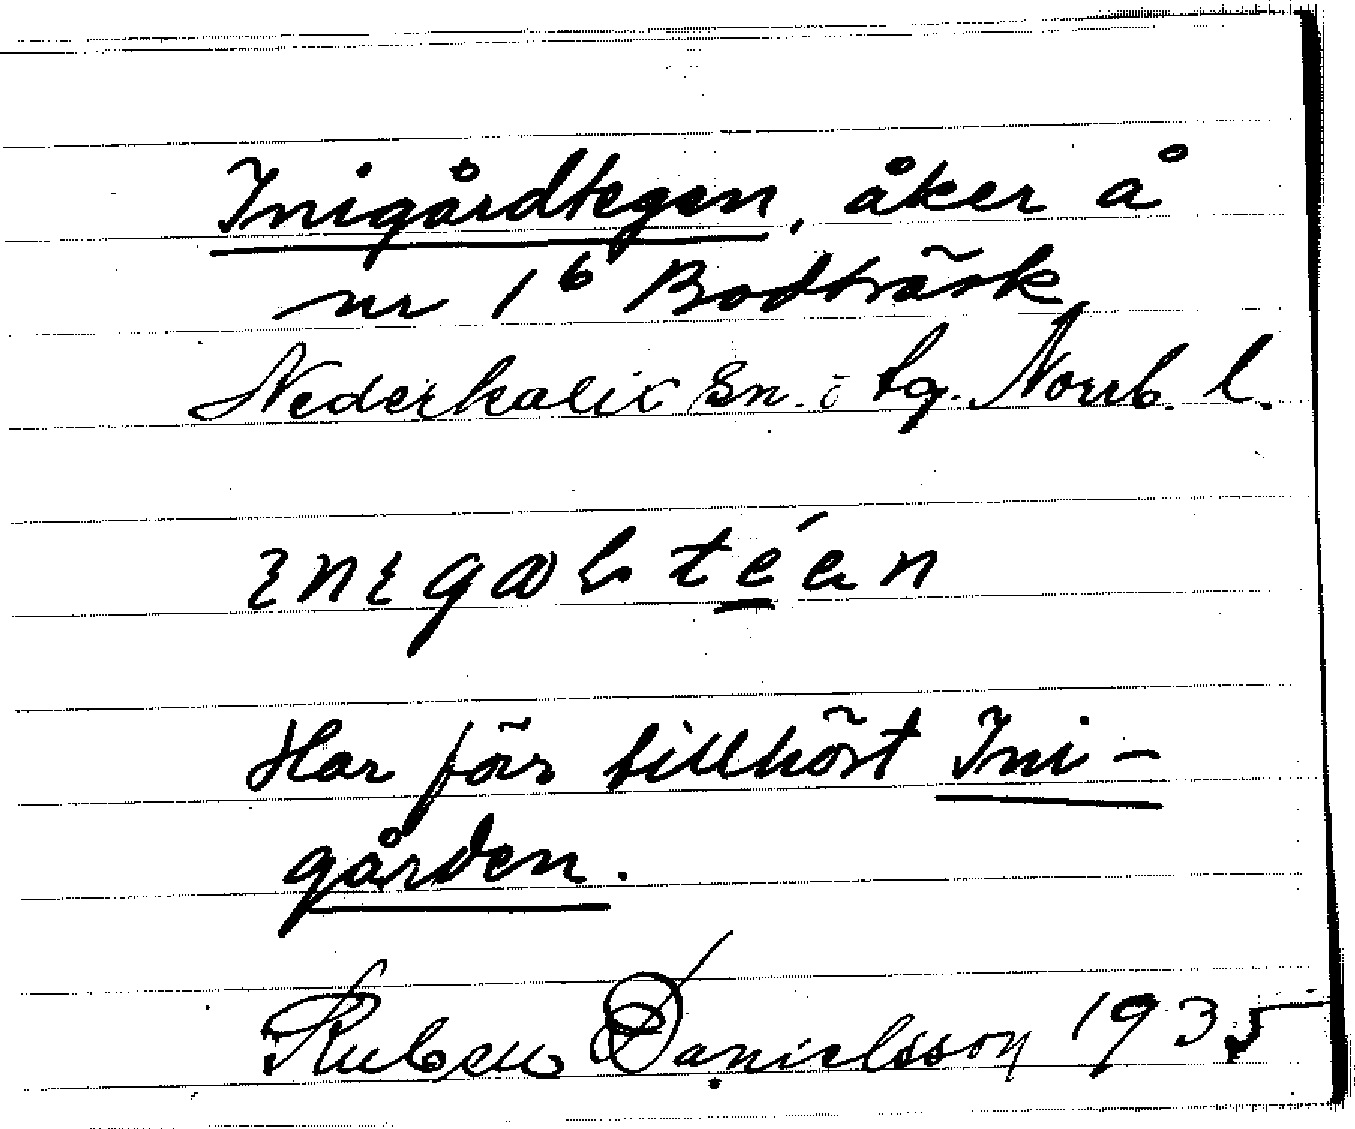 Inigårdtegen, åker å
nr 1⁶ Bodträsk
Nederkalix sn. o tg. Norrb. l.
téen
Har förr tillhört Ini-
gården.
Ruben Danielsson 1935